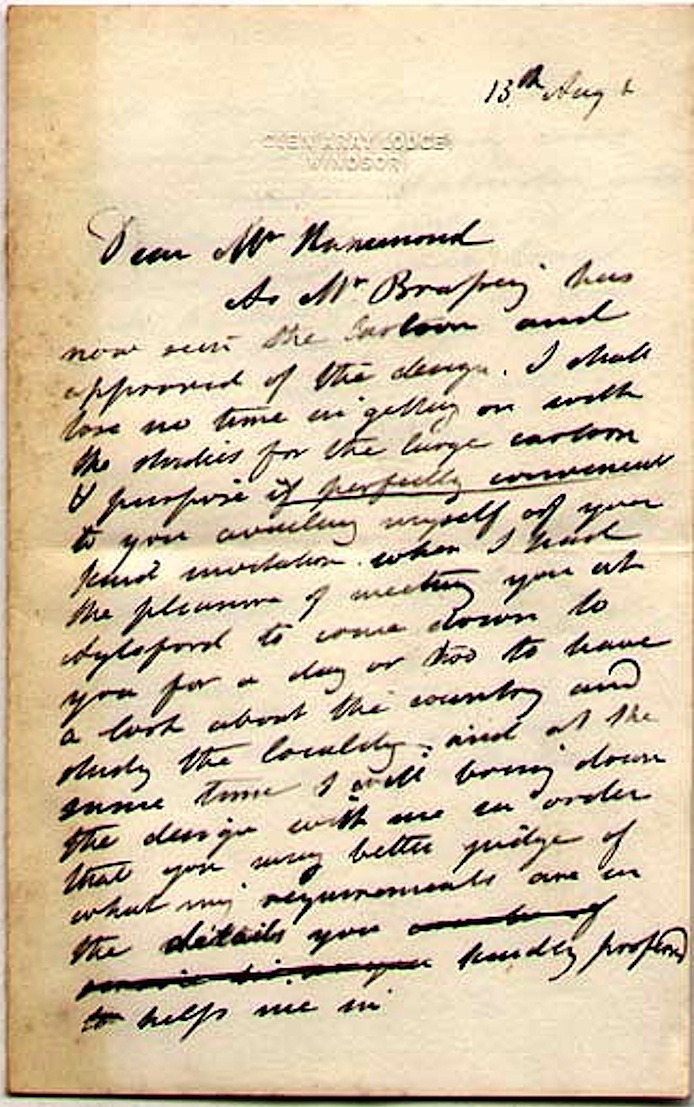 13th Aug
GLEN ARAY LODGE
WINDSOR
Dear Mr Hammond
As Mr Brassey has
now seen the Cartoon and
approved of the design. I shall
lose no time in getting on with
the studies for the large cartoon
& purpose if perfectly convenient
to you availing myself of your
kind invitation. when I had
the pleasure of meeting you at
Aylsford to come down to
you for a day or two to have
a look about the country and
study the locality, and at the
same time I will bring down
the design with me in order
that you may better judge of
what my requirements are in
the details you
kindly proferd
to help me in